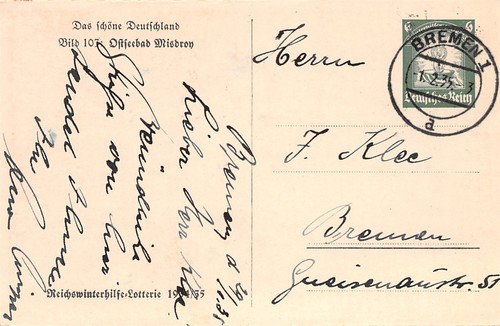 Das schöne Deutschland
Bild 107. Ostseebad Misdroy
Bremen, d.
Lieber Herr Klee
von hier
sendet Ihnen
Ihr
Reichswinterhilfe-Lotterie 1934/35
6 6
Deutsches Reich
BREMEN 1
-1.2.35
a
Herrn
F. Klee
Bremen
Gneisenaustr. 51